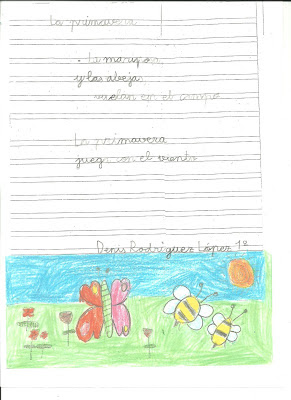 La primavera
La maripos
y las abejas
vuelan en el campo
La primavera
juega con el viento
Denis Rodríguez López 1º